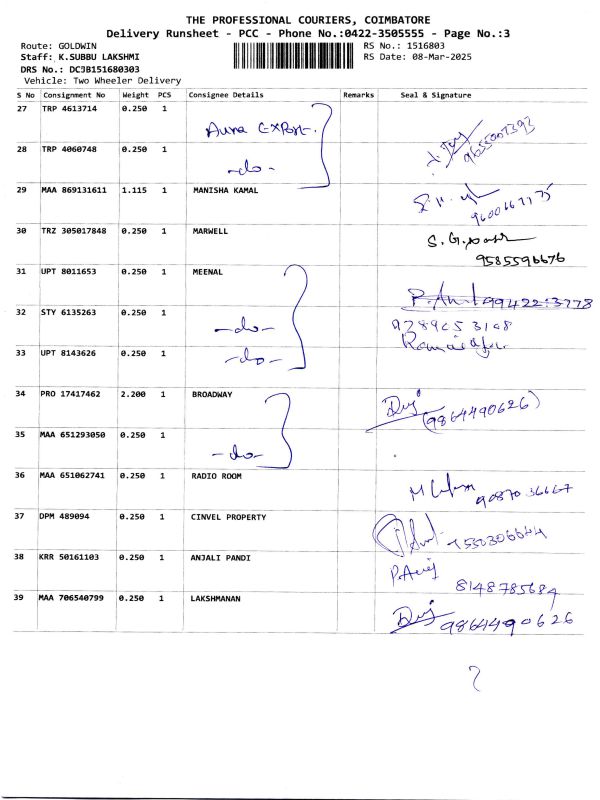 THE PROFESSIONAL COURIERS, COIMBATORE
Delivery Runsheet - PCC - Phone No.:0422-3505555 - Page No.:3
Route: GOLDWIN RS No.: 1516803
Staff: K.SUBBU LAKSHMI RS Date: 08-Mar-2025
DRS No.: DCJB151680303
Vehicle: Two Wheeler Delivery
S No Consignment No Weight PCS Consignee Details Remarks Seal & Signature
27 TRP 4613714 0.250 1 Aura Export.
28 TRP 4060748 0.250 1 -do- 9655007393
29 MAA 869131611 1.115 1 MANISHA KAMAL
9600667175
30 TRZ 305017848 0.250 1 MARWELL
9585596676
31 UPT 8011653 0.250 1 MEENAL
32 STY 6135263 0.250 1 -do-
33 UPT 8143626 0.250 1 -do-
34 PRO 17417462 2.200 1 BROADWAY
(9864490626)
35 MAA 651293050 0.250 1 -do-
36 MAA 651062741 0.250 1 RADIO ROOM
90870 36667
37 DPM 489094 0.250 1 CINVEL PROPERTY
38 KRR 50161103 0.250 1 ANJALI PANDI
8148785684
39 MAA 706540799 0.250 1 LAKSHMANAN
9864490626